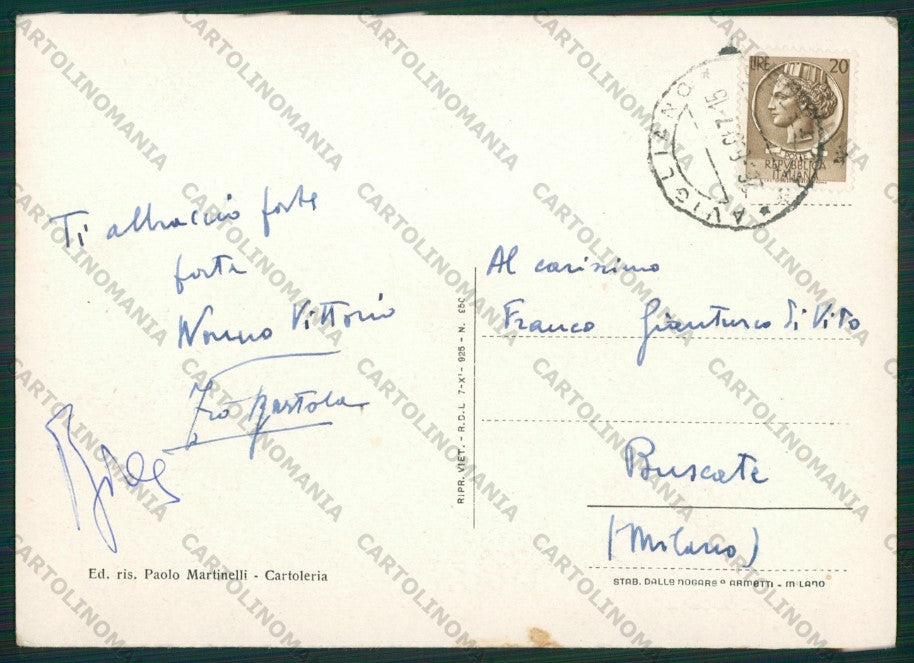 LIRE 20
REPUBBLICA
ITALIANA
AVIGLIANO
Ti abbraccio forte
forte
Nonno Vittorio
Zio Bartola
Al carissimo
Franco Gianturco Di Vito
Buscate
(Milano)
RIPR. VIET. - R.D.L. 7-XI-925 - N. 850
Ed. ris. Paolo Martinelli - Cartoleria
STAB. DALLE NOGARE e ARMETTI - MILANO
CARTOLINOMANIA